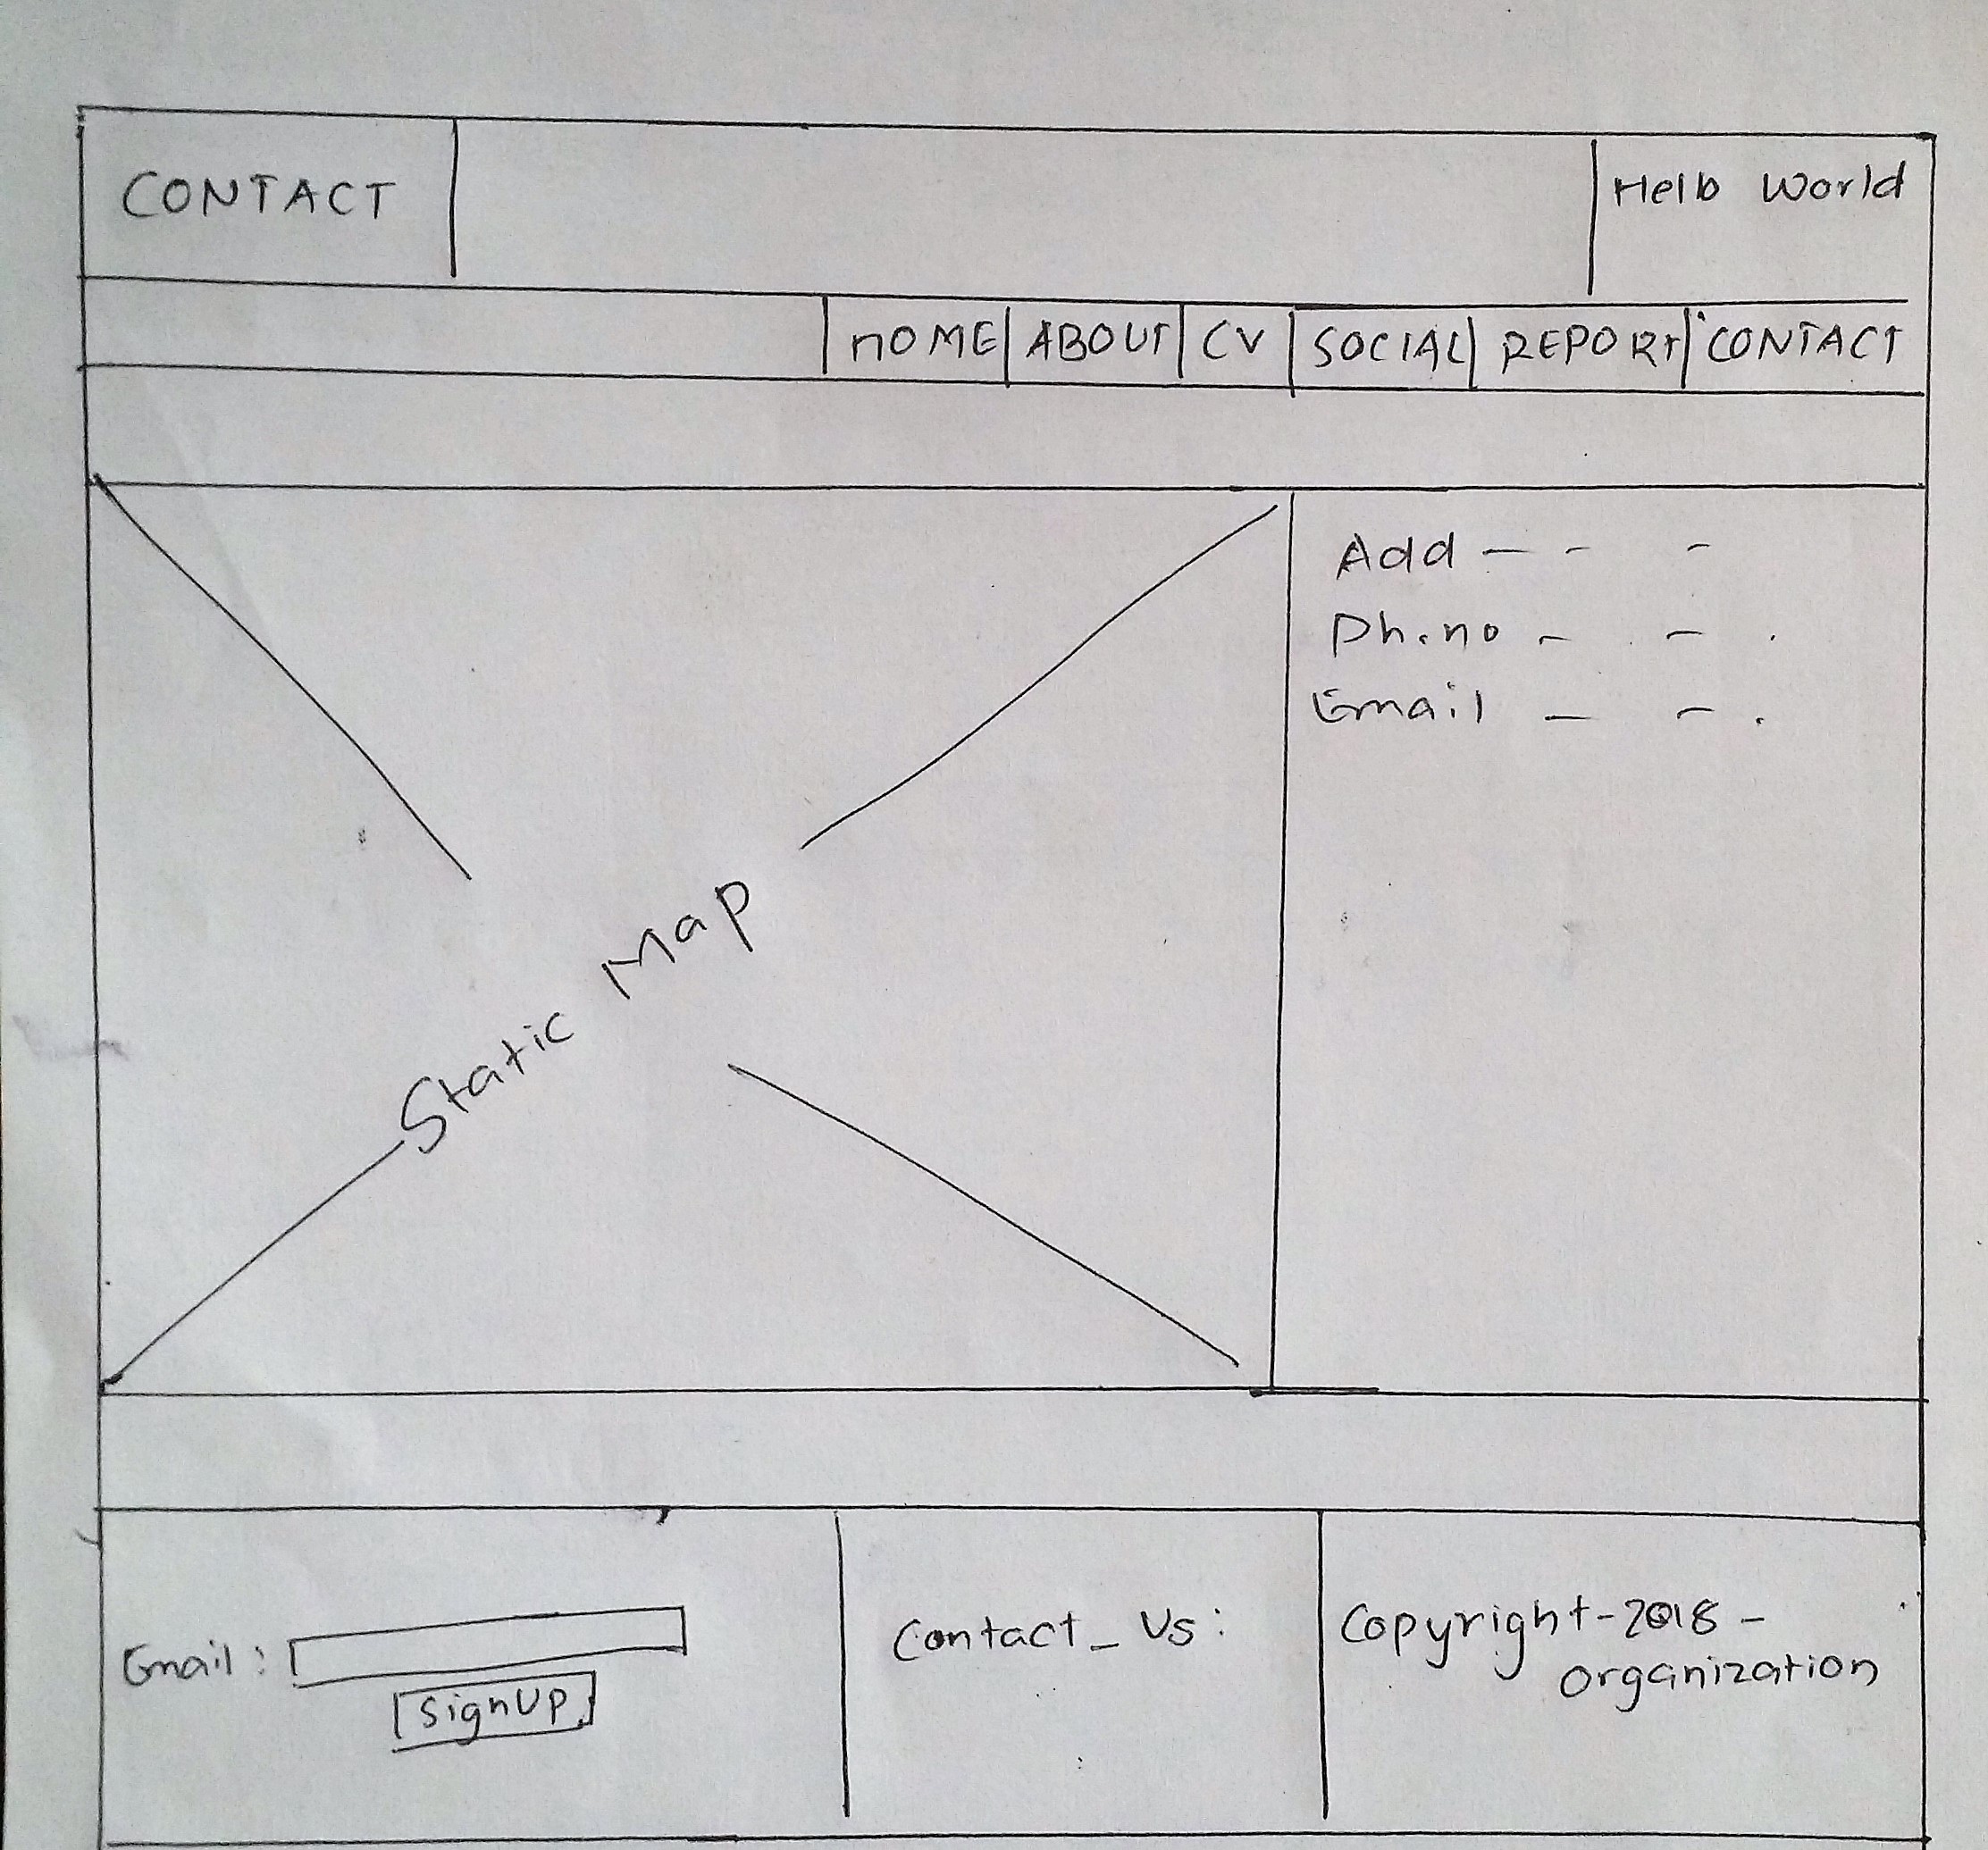 CONTACT
Hello World
HOME ABOUT CV SOCIAL REPORT CONTACT
Add - - -
Ph.no - - .
Email - - .
Static Map
Email :
SignUp
Contact_Us:
Copyright-2018-
organization